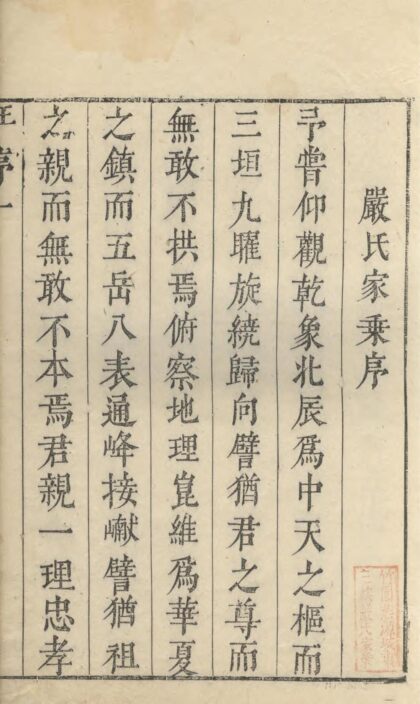 嚴氏家乗序
予嘗仰觀乾象北辰爲中天之樞而
三垣九曜旋繞歸向譬猶君之尊而
無敢不拱焉俯察地理崑維爲華夏
之鎮而五岳八表通峰接巘譬猶祖
之親而無敢不本焉君親一理忠孝
序一